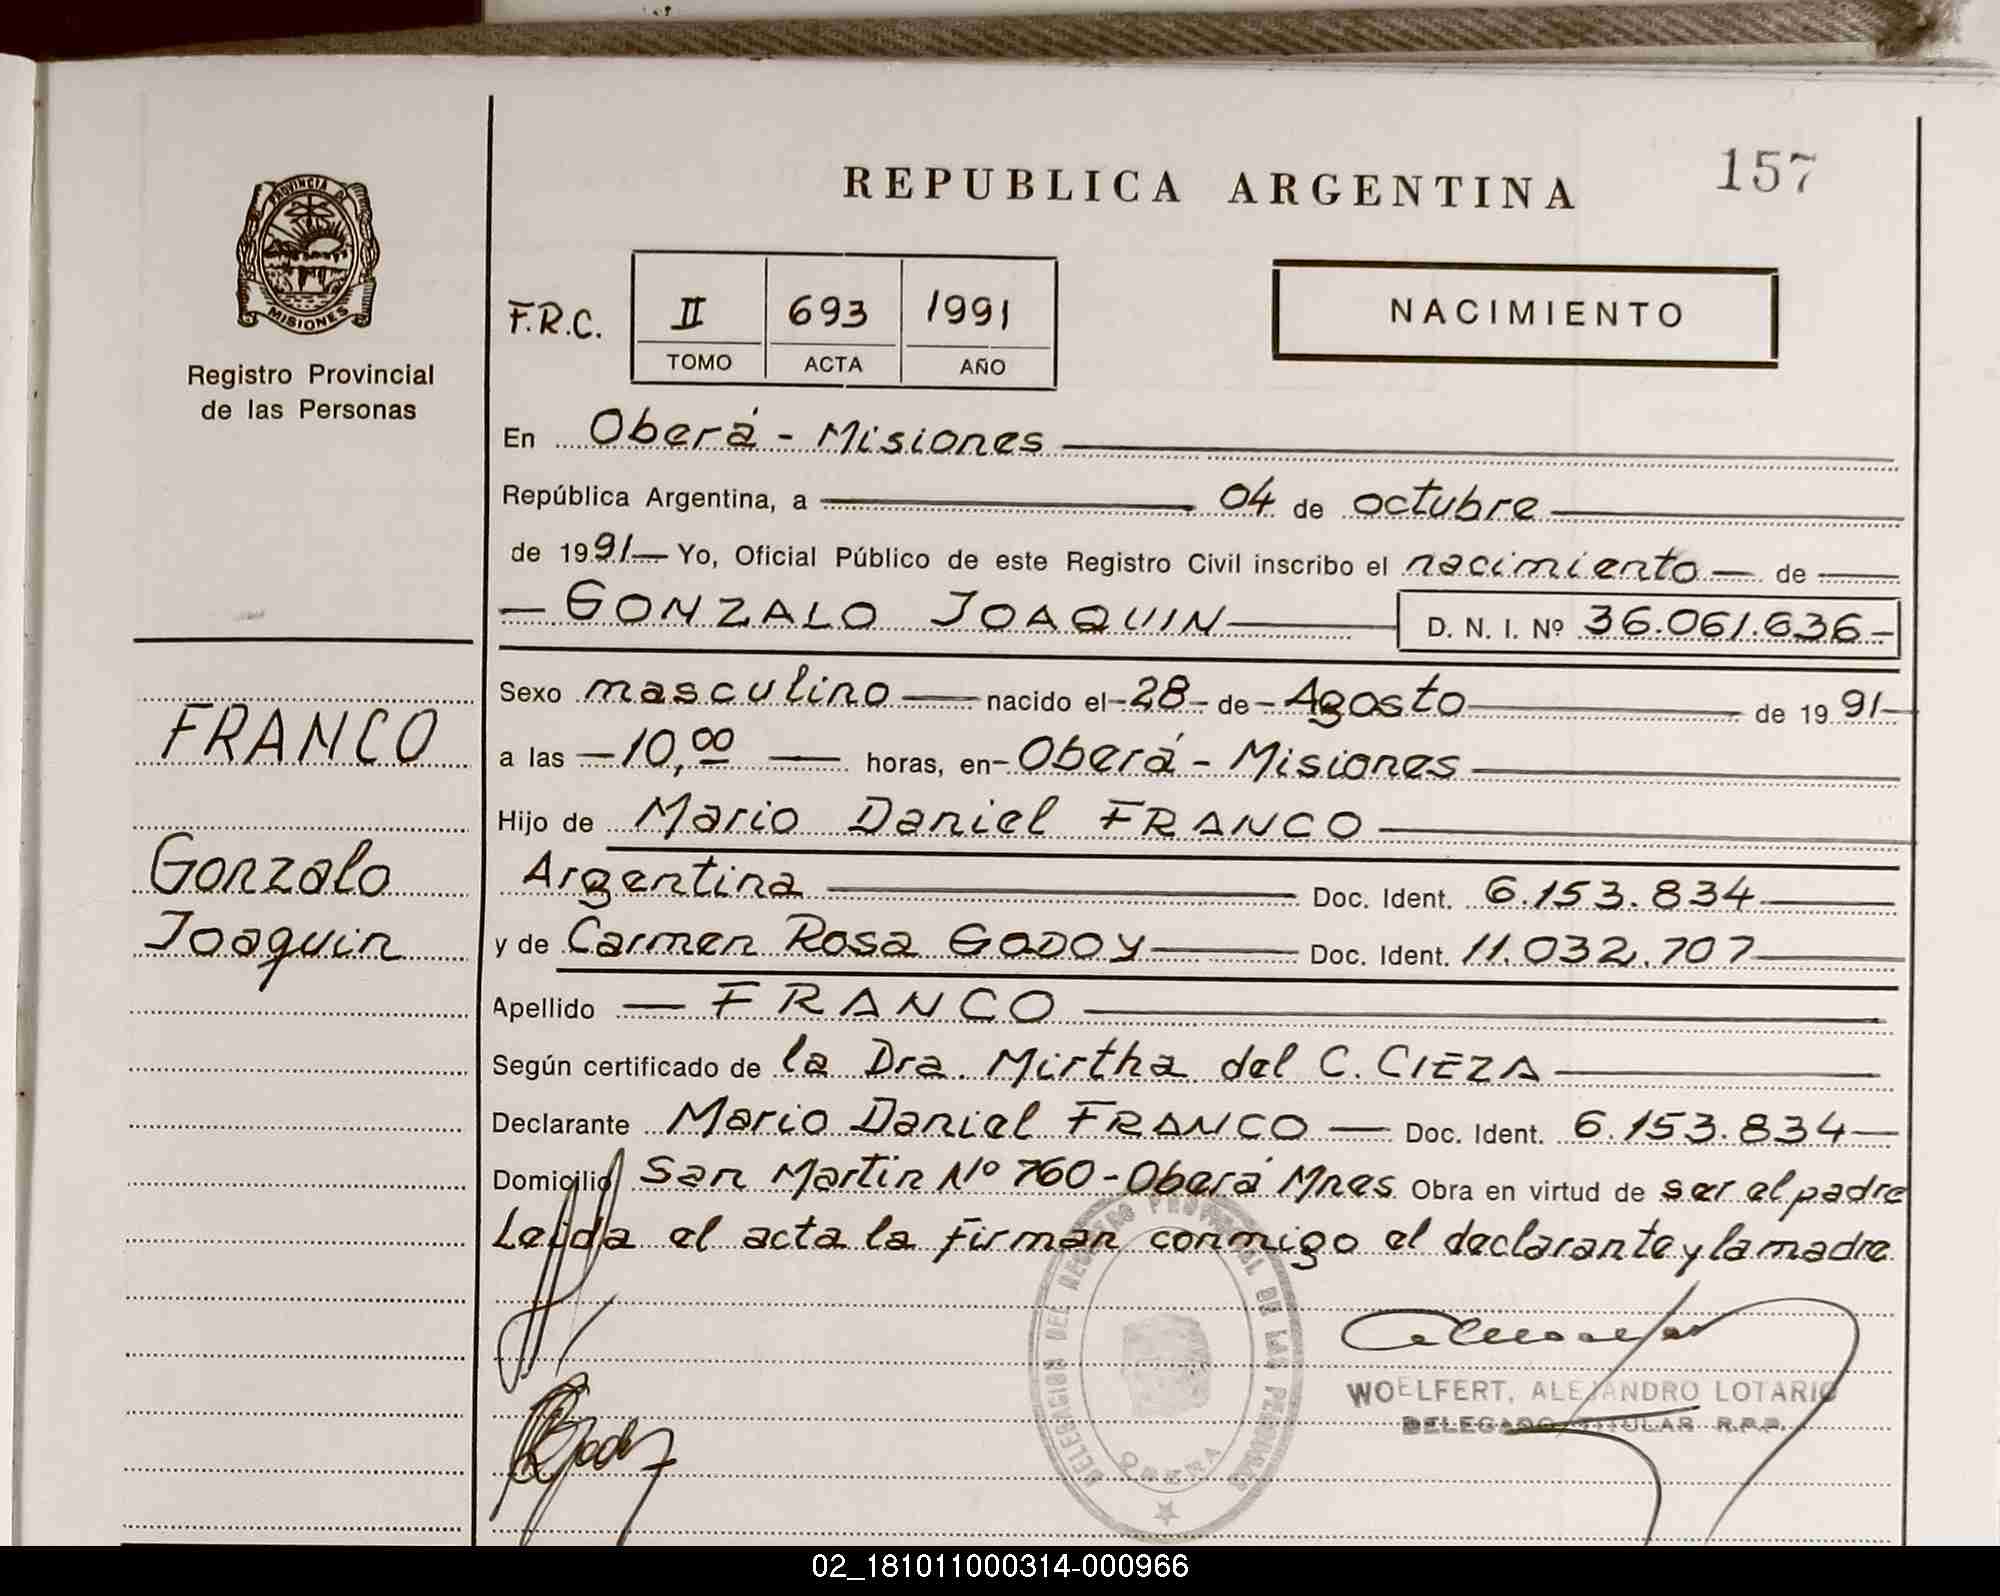 REPUBLICA ARGENTINA
157
PROVINCIA DE
MISIONES
Registro Provincial
de las Personas
F.R.C.
II 693 1991
TOMO ACTA AÑO
NACIMIENTO
En Oberá - Misiones
República Argentina, a 04 de octubre
de 1991 Yo, Oficial Público de este Registro Civil inscribo el nacimiento de
GONZALO JOAQUIN D. N. I. Nº 36.061.636-
Sexo masculino nacido el 28 de Agosto de 1991
a las 10,00 horas, en Oberá - Misiones
Hijo de Mario Daniel FRANCO
Argentina Doc. Ident. 6.153.834
y de Carmen Rosa GODOY Doc. Ident. 11.032.707
Apellido FRANCO
Según certificado de la Dra. Mirtha del C. CIEZA
Declarante Mario Daniel FRANCO Doc. Ident. 6.153.834
Domicilio San Martin Nº 760 - Oberá Mnes Obra en virtud de ser el padre
Leida el acta la firman conmigo el declarante y la madre
FRANCO
Gonzalo
Joaquin
DELEGACION DEL REGISTRO PROVINCIAL DE LAS PERSONAS
OBERA
WOELFERT, ALEJANDRO LOTARIO
DELEGADO TITULAR R.P.P.
02_181011000314-000966